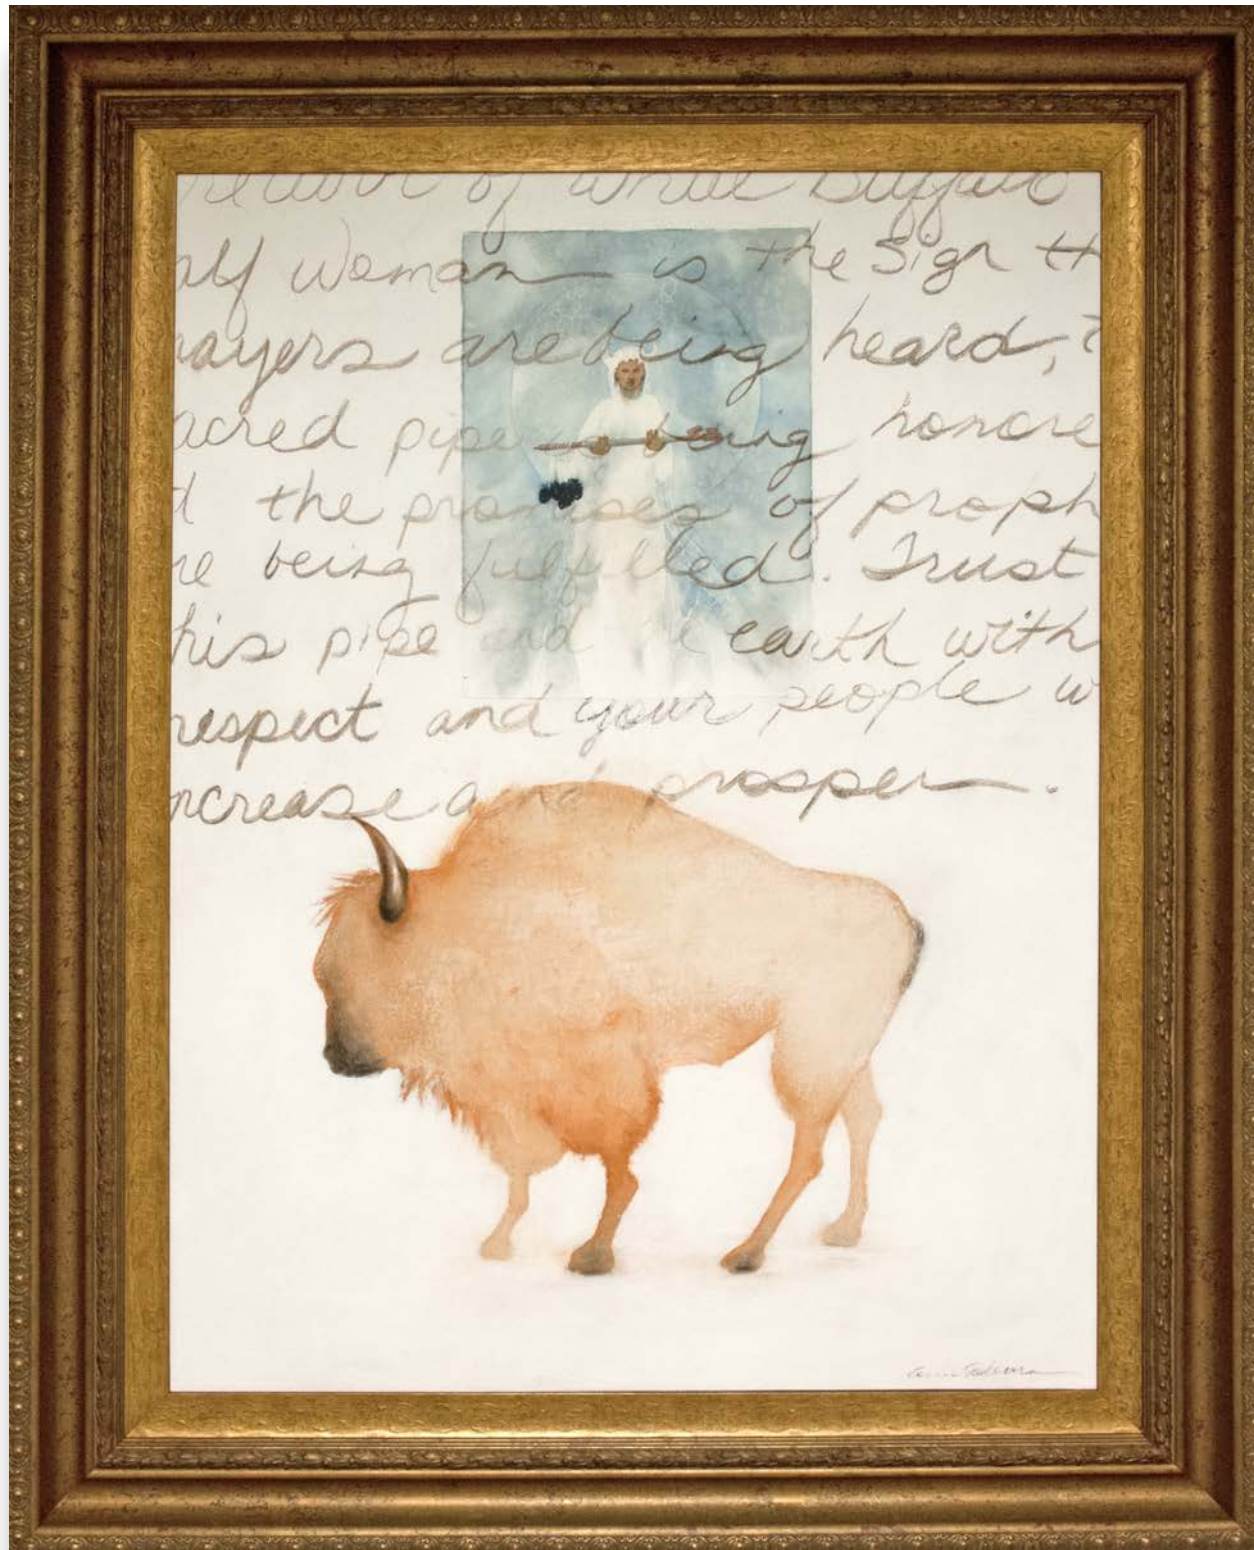 return of white Buffalo
alf woman is the Sign th
rayers are being heard, t
acred pipe being honore
d the promises of proph
re being fulfilled. Trust
his pipe and the earth with
respect and your people w
ncrease and prosper.